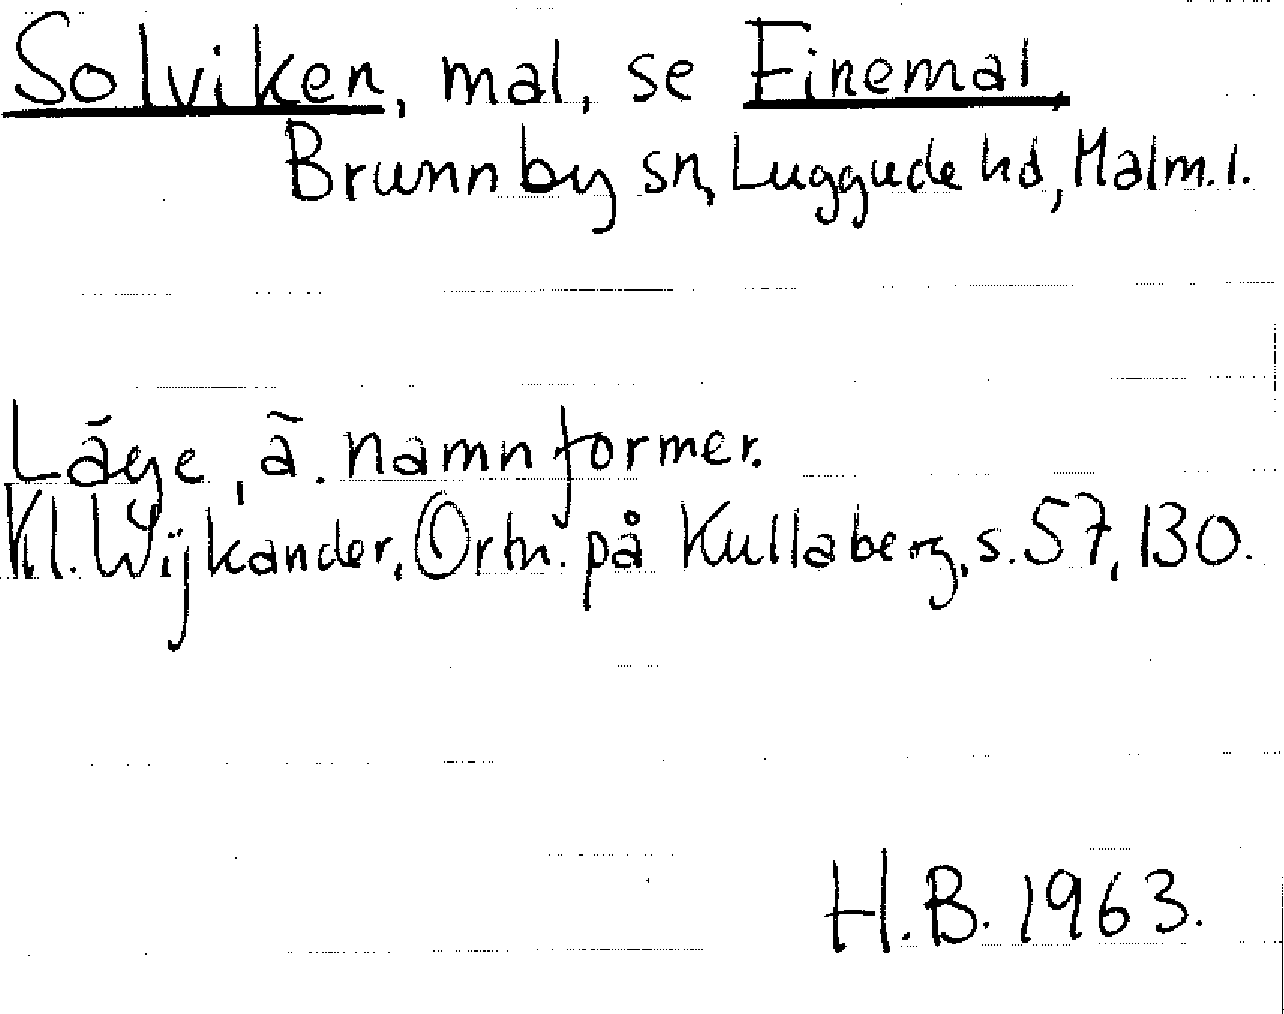 Solviken, mal, se Finemal,
Brunnby sn, Luggude hd, Malm. l.
Läge, ä. namnformer.
Kl. Wijkander, Ortn. på Kullaberg, s. 57, 130.
H.B. 1963.